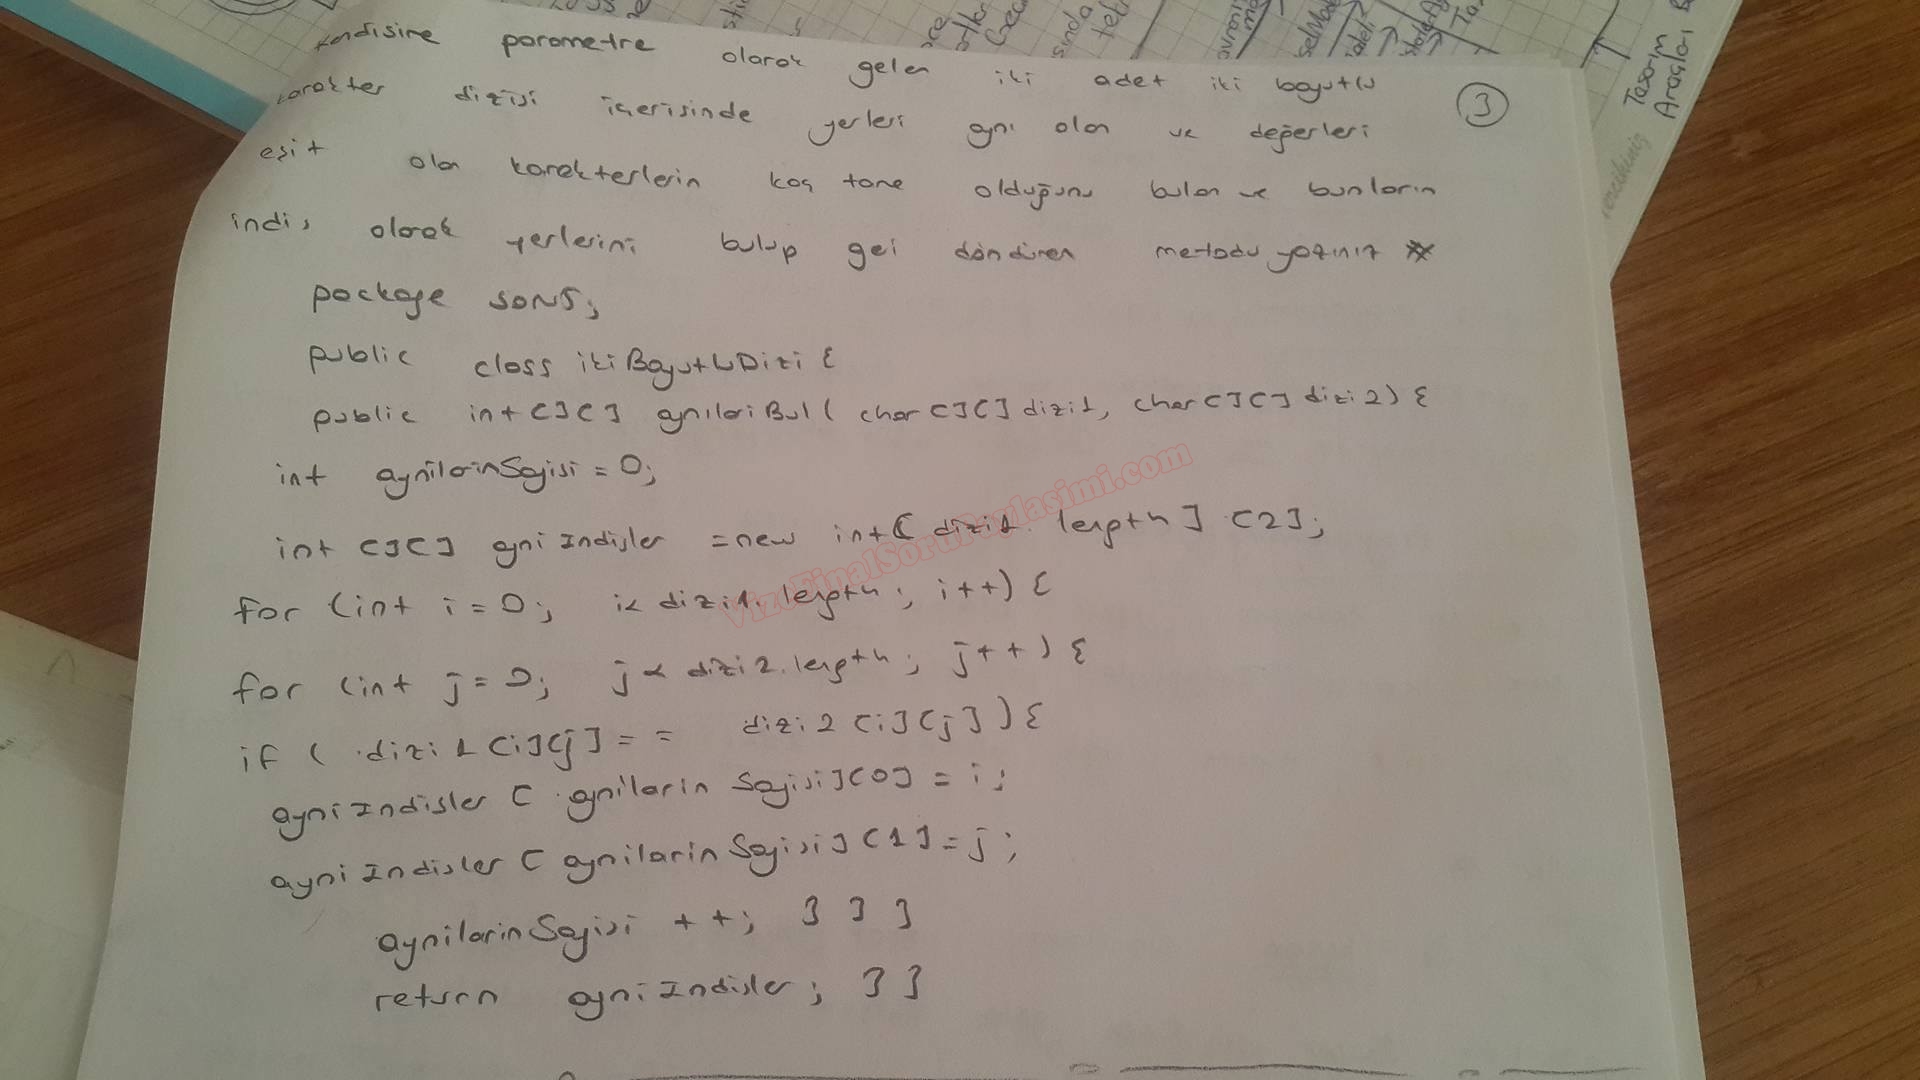 kendisine parametre olarak gelen iki adet iki boyutlu
karakter dizisi içerisinde yerleri aynı olan ve değerleri
eşit olan karakterlerin kaç tane olduğunu bulan ve bunların
indis olarak yerlerini bulup gei döndüren metodu yazınız
3
package SON5;
public class ikiBoyutluDizi {
public int [][] aynilariBul ( char [][] dizi1, char [][] dizi2) {
int aynilarinSayisi = 0;
int [][] ayniIndisler = new int [ dizi1. length ] [2];
for (int i = 0; i < dizi1. length ; i++) {
for (int j = 0; j < dizi2. length ; j++) {
if ( dizi1 [i][j] == dizi2 [i][j] ) {
ayniIndisler [ aynilarin Sayisi ] [0] = i ;
ayniIndisler [ aynilarinSayisi ] [1] = j ;
aynilarinSayisi ++; } } }
return ayniIndisler ; } }
VizeFinalSoruPaylasimi.com
Tasarım
Araçları
sında